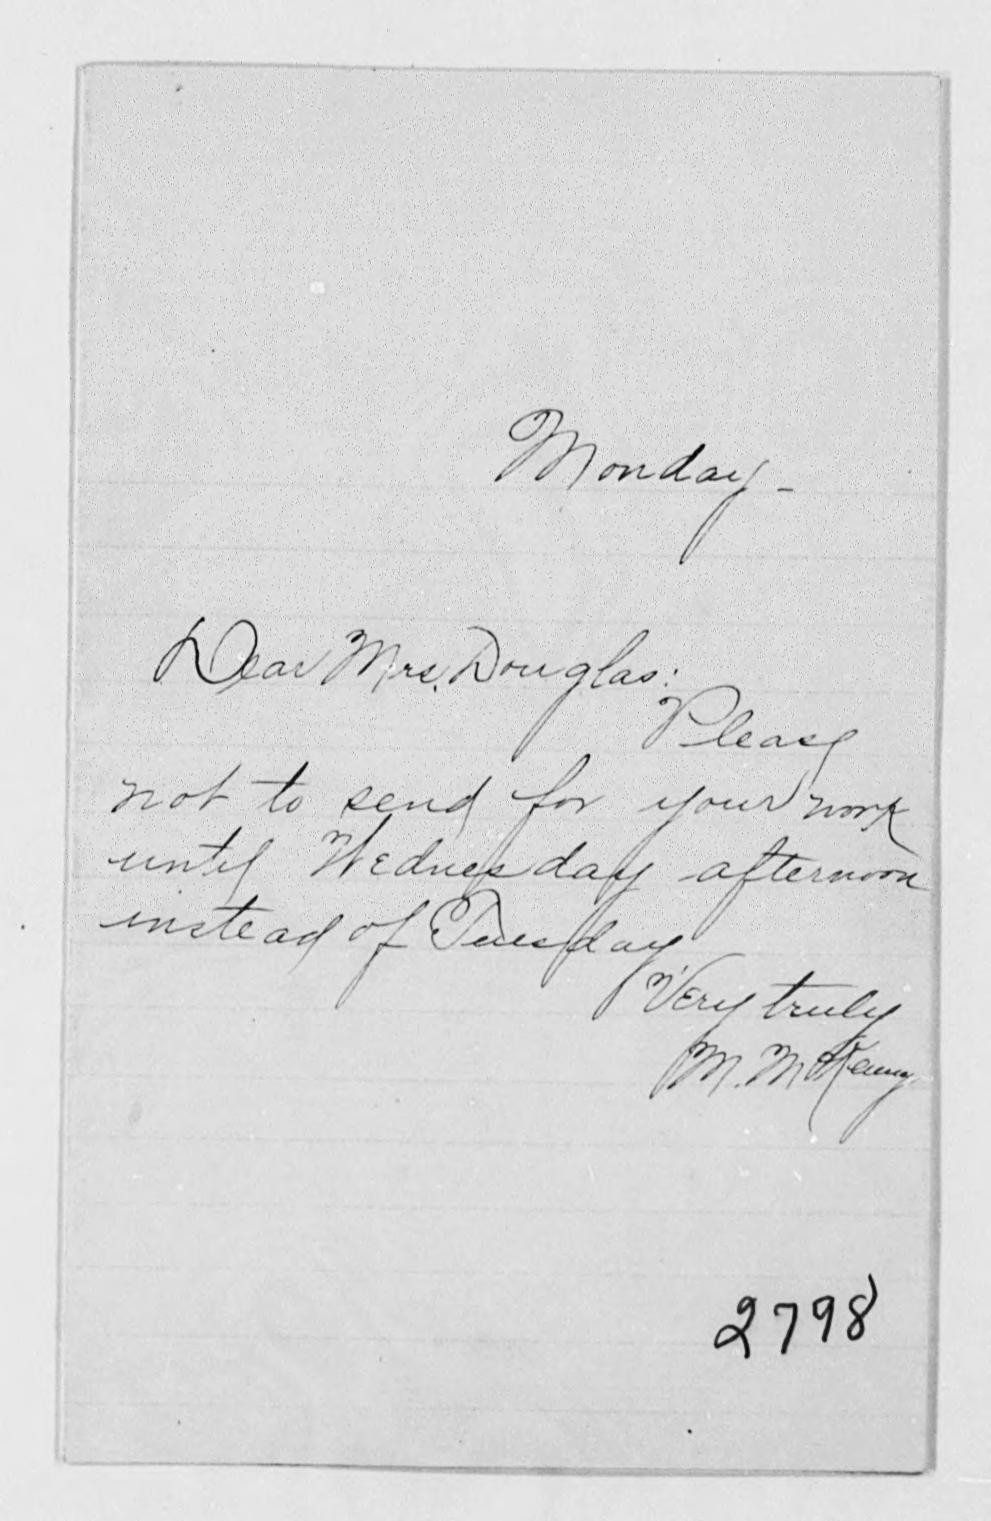 Monday -
Dear Mrs. Douglas:
Please
not to send for your work
until Wednesday afternoon
instead of Tuesday.
Very truly
M. McKenny.
2798